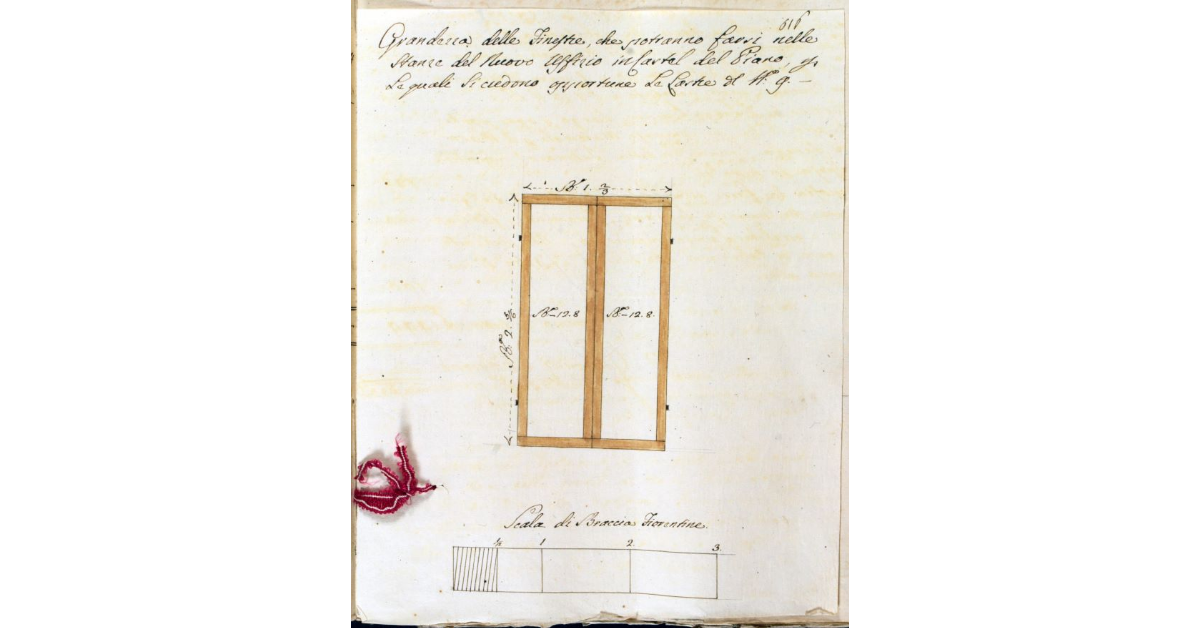 616
Grandezza delle Finestre, che potranno farsi nelle
Stanze del Nuovo Uffizio in Castel del Piano, p
le quali si credono opportune le Carte di N.º 9. —
Bª 1. 2/3
Bª 2.
Bª—12.8
Bª—12.8
Scala di Braccia Fiorentine
1
2
3.